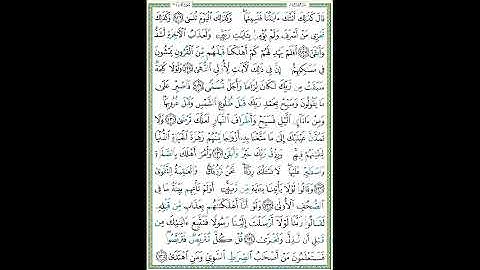 قَالَ كَذَٰلِكَ أَتَتْكَ ءَايَٰتُنَا فَنَسِيتَهَاۖ وَكَذَٰلِكَ ٱلْيَوْمَ تُنسَىٰ ١٢٦ وَكَذَٰلِكَ
نَجْزِى مَنْ أَسْرَفَ وَلَمْ يُؤْمِنۢ بِـَٔايَٰتِ رَبِّهِۦۚ وَلَعَذَابُ ٱلْـَٔاخِرَةِ أَشَدُّ
وَأَبْقَىٰٓ ١٢٧ أَفَلَمْ يَهْدِ لَهُمْ كَمْ أَهْلَكْنَا قَبْلَهُم مِّنَ ٱلْقُرُونِ يَمْشُونَ
فِى مَسَٰكِنِهِمْۗ إِنَّ فِى ذَٰلِكَ لَـَٔايَٰتٍ لِّأُو۟لِى ٱلنُّهَىٰ ١٢٨ وَلَوْلَا كَلِمَةٌ
سَبَقَتْ مِن رَّبِّكَ لَكَانَ لِزَامًا وَأَجَلٌ مُّسَمًّى ١٢٩ فَٱصْبِرْ عَلَىٰ
مَا يَقُولُونَ وَسَبِّحْ بِحَمْدِ رَبِّكَ قَبْلَ طُلُوعِ ٱلشَّمْسِ وَقَبْلَ غُرُوبِهَاۖ
وَمِنْ ءَانَآئِ ٱلَّيْلِ فَسَبِّحْ وَأَطْرَافَ ٱلنَّهَارِ لَعَلَّكَ تَرْضَىٰ ١٣٠ وَلَا
تَمُدَّنَّ عَيْنَيْكَ إِلَىٰ مَا مَتَّعْنَا بِهِۦٓ أَزْوَٰجًا مِّنْهُمْ زَهْرَةَ ٱلْحَيَوٰةِ ٱلدُّنْيَا
لِنَفْتِنَهُمْ فِيهِۚ وَرِزْقُ رَبِّكَ خَيْرٌ وَأَبْقَىٰ ١٣١ وَأْمُرْ أَهْلَكَ بِٱلصَّلَوٰةِ
وَٱصْطَبِرْ عَلَيْهَاۖ لَا نَسْـَٔلُكَ رِزْقًاۖ نَّحْنُ نَرْزُقُكَۗ وَٱلْعَٰقِبَةُ لِلتَّقْوَىٰ
١٣٢ وَقَالُوا۟ لَوْلَا يَأْتِينَا بِـَٔايَةٍ مِّن رَّبِّهِۦٓۚ أَوَلَمْ تَأْتِهِم بَيِّنَةُ مَا فِى
ٱلصُّحُفِ ٱلْأُولَىٰ ١٣٣ وَلَوْ أَنَّآ أَهْلَكْنَٰهُم بِعَذَابٍ مِّن قَبْلِهِۦ
لَقَالُوا۟ رَبَّنَا لَوْلَآ أَرْسَلْتَ إِلَيْنَا رَسُولًا فَنَتَّبِعَ ءَايَٰتِكَ مِن
قَبْلِ أَن نَّذِلَّ وَنَخْزَىٰ ١٣٤ قُلْ كُلٌّ مُّتَرَبِّصٌ فَتَرَبَّصُوا۟ۖ
فَسَتَعْلَمُونَ مَنْ أَصْحَٰبُ ٱلصِّرَٰطِ ٱلسَّوِىِّ وَمَنِ ٱهْتَدَىٰ ١٣٥